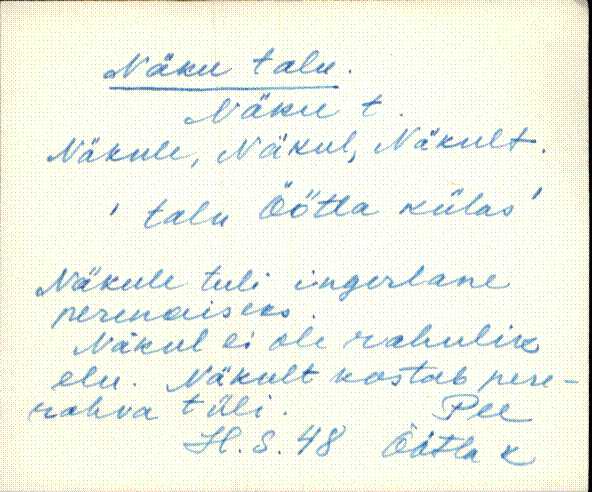 Näku talu.
Näku t.
Näkule, Näkul, Näkult.
' talu Öötla külas '
Näkule tuli ingerlane
perenaiseks.
Näkul ei ole rahulik
elu. Näkult kostab pere-
rahva tüli. Pee
H. S. 48 Öötla k